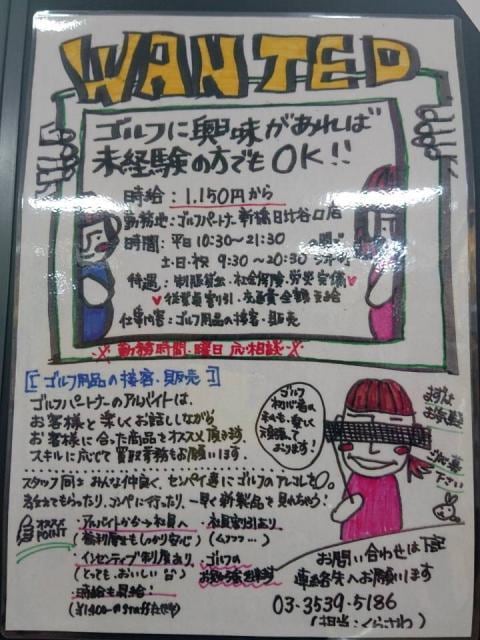 WANTED
ゴルフに興味があれば
未経験の方でもOK!!
時給：1,150円から
勤務地：ゴルフパートナー新橋日比谷口店
時間：平日 10:30〜21:30
土・日・祝 9:30〜20:30
待遇：制服貸出・社会保険・労災完備
♥従業員割引・交通費全額支給
仕事内容：ゴルフ用品の接客・販売
※勤務時間・曜日応相談※
[ゴルフ用品の接客・販売]
ゴルフパートナーのアルバイトは、
お客様と楽しくお話ししながら
お客様に合った商品をオススメ頂きます。
スキルに応じて買取業務もお願いします。
ゴルフ
初心者の
私も、楽しく
頑張って
おります!
まずは
お気軽に
ご応募
下さい
スタッフ同士みんな仲良く、センパイ達にゴルフのアレコレを
教えてもらったり、コンペに行ったり、一早く新製品を見れちゃう!
オススメ
POINT
アルバイトから→社員へ
(福利厚生もしっかり安心)
・社員割引あり
(ムフフ…)
・インセンティブ制度あり
(とってもおいしいな)
・ゴルフの
・時給も昇給!
お問い合わせは下記
連絡先へお願いします
03-3539-5186
(担当：くらさわ)